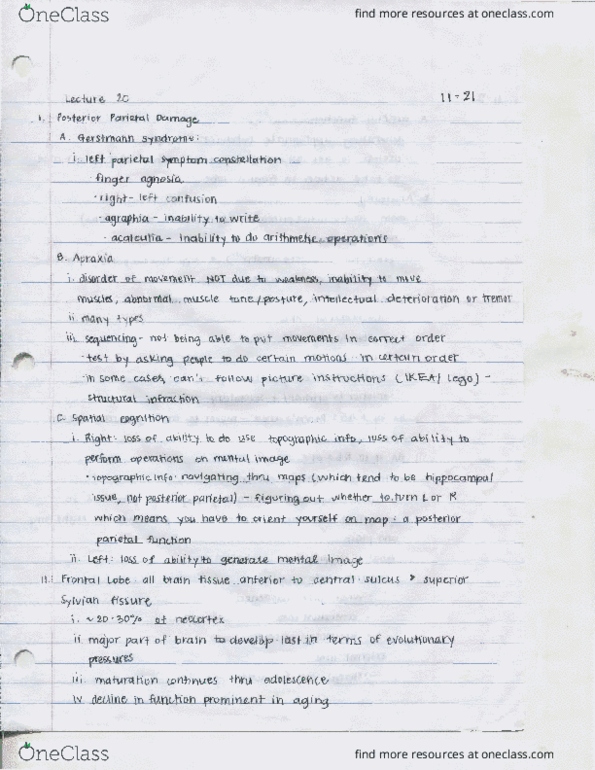 OneClass
find more resources at oneclass.com
Lecture 20 11-21
I. Posterior Parietal Damage
A. Gerstmann syndrome:
i. left parietal symptom constellation
· finger agnosia
· right-left confusion
· agraphia - inability to write
· acalculia - inability to do arithmetic operations
B. Apraxia
i. disorder of movement NOT due to weakness, inability to move
muscles, abnormal muscle tone/posture, intellectual deterioration or tremor
ii many types
iii. sequencing - not being able to put movements in correct order
· test by asking people to do certain motions in certain order
· in some cases, can't follow picture instructions (IKEA/Lego) -
structural infraction
C. Spatial cognition
i. Right: loss of ability to do use topographic info, loss of ability to
perform operations on mental image
· topographic info: navigating thru maps (which tend to be hippocampal
issue, not posterior parietal) - figuring out whether to turn L or R
which means you have to orient yourself on map: a posterior
parietal function
ii. Left: loss of ability to generate mental image
II. Frontal Lobe: all brain tissue anterior to central sulcus & superior
Sylvian fissure
i. ~20-30% of neocortex
ii major part of brain to develop last in terms of evolutionary
pressures
iii maturation continues thru adolescence
iv decline in function prominent in aging
OneClass
find more resources at oneclass.com